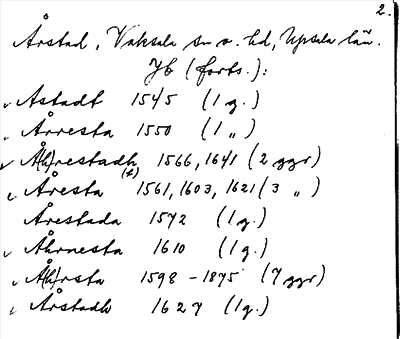 2.
Årstad, Vaksala sn o. hd, Upsala län.
Jb (forts.):
Åstadt 1545 (1 g.)
Årresta 1550 (1 „)
Å(h)restadh 1566, 1641 (2 ggr)
Åresta (h) 1561, 1603, 1621 (3 „)
Årestada 1572 (1 g.)
Åhrnesta 1610 (1 g.)
Å(h)rsta 1598 - 1875 (7 ggr)
Årstadh 1627 (1 g.)